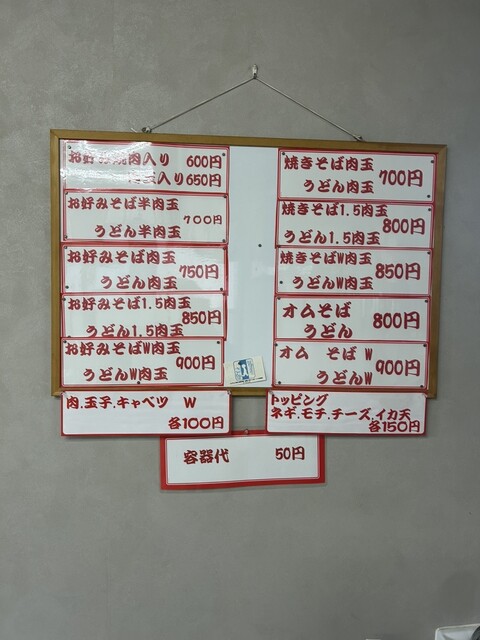 お好み焼肉入り 600円
肉玉入り650円
お好みそば半肉玉
うどん半肉玉 700円
お好みそば肉玉
うどん肉玉 750円
お好みそば1.5肉玉
うどん1.5肉玉 850円
お好みそばW肉玉
うどんW肉玉 900円
肉.玉子.キャベツ W
各100円
焼きそば肉玉
うどん肉玉 700円
焼きそば1.5肉玉
うどん1.5肉玉 800円
焼きそばW肉玉
うどんW肉玉 850円
オムそば
うどん 800円
オム そば W
うどんW 900円
トッピング
ネギ.モチ.チーズ.イカ天
各150円
容器代 50円